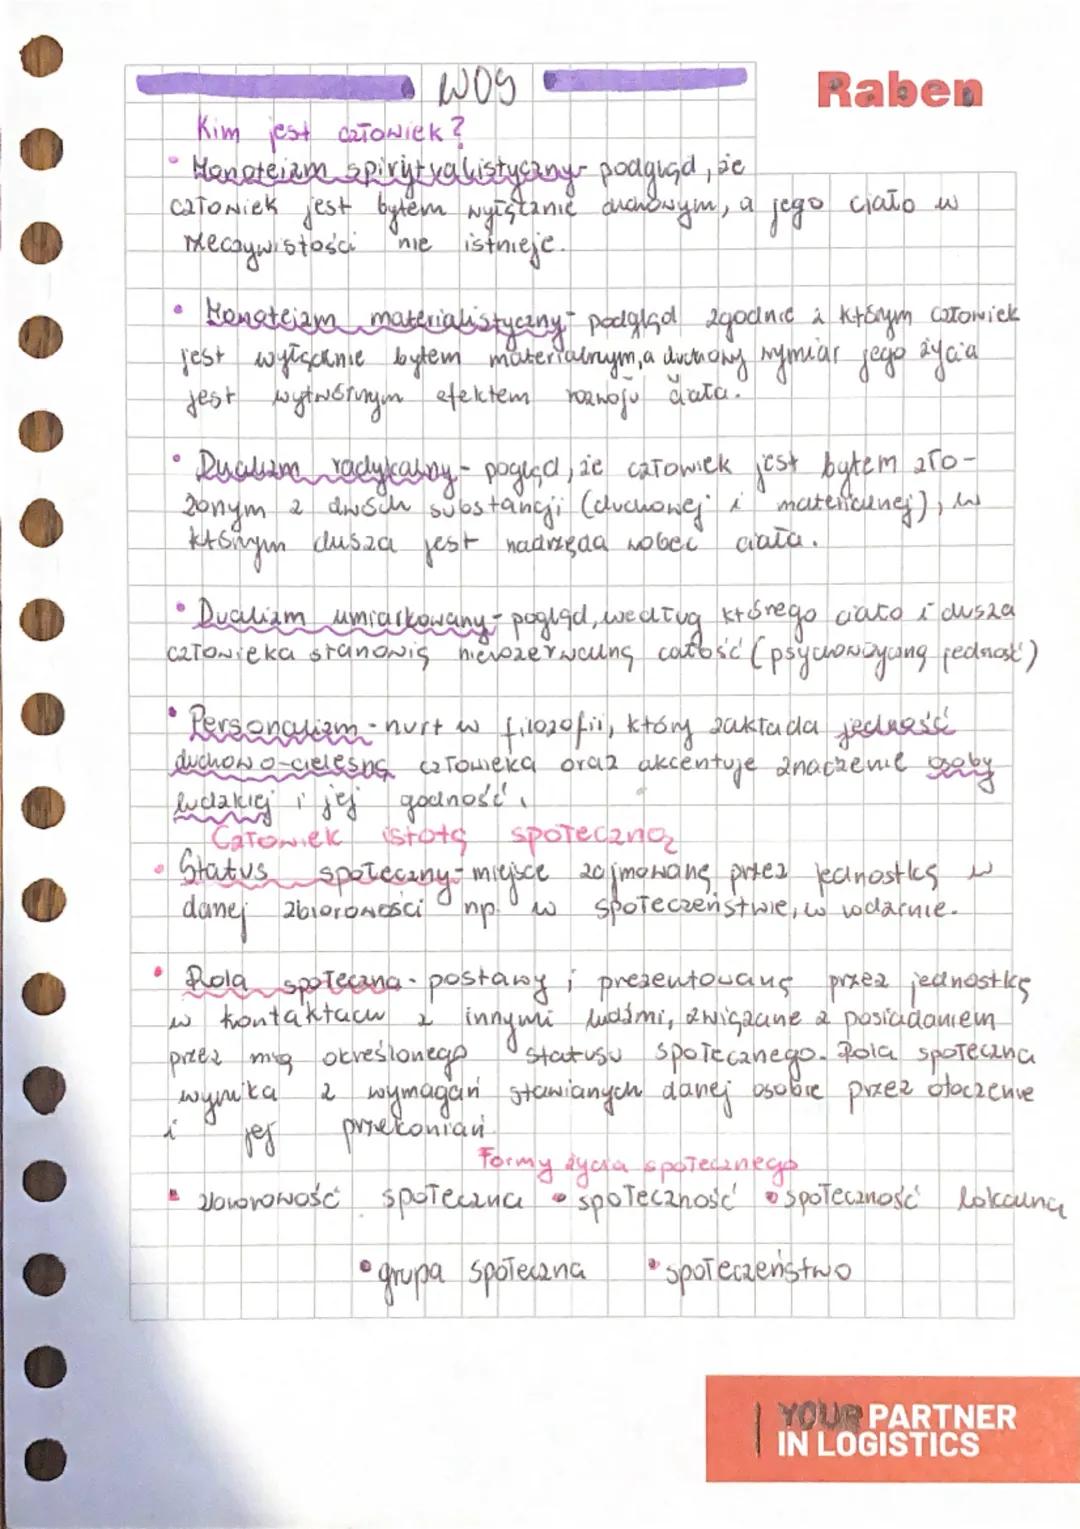 WOS
Raben
Kim jest człowiek?
• Monoteizm spirytualistyczny - podgląd, że
człowiek jest bytem wyłącznie duchowym, a jego ciało w
rzeczywistości nie istnieje.
• Monoteizm materialistyczny - podgląd zgodnie z którym człowiek
jest wyłącznie bytem materialnym, a duchowy wymiar jego życia
jest wytwórnym efektem rozwoju ciała.
• Dualizm radykalny - pogląd, że człowiek jest bytem zło-
żonym z dwóch substancji (duchowej i materialnej), w
którym dusza jest nadrzęda wobec ciała.
• Dualizm umiarkowany - pogląd, według którego ciało i dusza
człowieka stanowią nierozerwalną całość (psychofizyczną jedność)
• Personalizm - nurt w filozofii, który zakłada jedność
duchowo-cielesną człowieka oraz akcentuje znaczenie osoby
ludzkiej i jej godność.
Człowiek istotą społeczną
• Status społeczny - miejsce zajmowane przez jednostkę w
danej zbiorowości np. w społeczeństwie, w rodzinie.
• Rola społeczna - postawy i prezentowane przez jednostkę
w kontaktach z innymi ludźmi, związane z posiadaniem
przez nią określonego statusu społecznego. Rola społeczna
wynika z wymagań stawianych danej osobie przez otoczenie
i jej przekonań.
Formy życia społecznego
• zbiorowość społeczna • społeczność • społeczność lokalna
• grupa społeczna • społeczeństwo
YOUR PARTNER
IN LOGISTICS